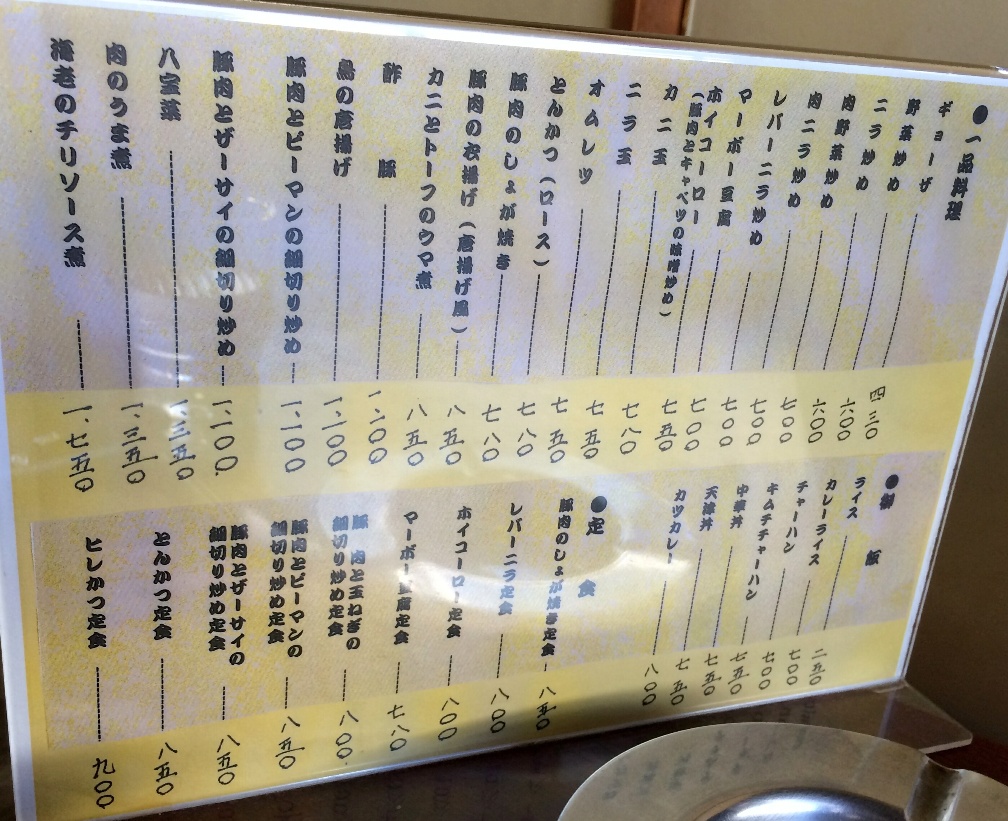 ●一品料理
ギョーザ 四三〇
野菜炒め 六〇〇
ニラ炒め 六〇〇
肉野菜炒め 七〇〇
肉ニラ炒め 七〇〇
レバーニラ炒め 七〇〇
マーボー豆腐 七〇〇
ホイコーロー 七五〇
(豚肉とキャベツの味噌炒め)
カニ玉 七八〇
ニラ玉 七五〇
オムレツ 七五〇
とんかつ(ロース) 七八〇
豚肉のしょが焼き 七八〇
豚肉の衣揚げ(唐揚げ風) 八五〇
カニとトーフのウマ煮 八五〇
酢豚 一、二〇〇
鳥の唐揚げ 一、一〇〇
豚肉とピーマンの細切り炒め 一、一〇〇
豚肉とザーサイの細切り炒め 一、一〇〇
八宝菜 一、三五〇
肉のうま煮 一、三五〇
海老のチリソース煮 一、七五〇
●御飯
ライス 二五〇
カレーライス 七〇〇
チャーハン 七〇〇
キムチチャーハン 七五〇
中華丼 七五〇
天津丼 七五〇
カツカレー 八〇〇
●定食
豚肉のしょが焼き定食 八五〇
レバーニラ定食 八〇〇
ホイコーロー定食 八〇〇
マーボー豆腐定食 七八〇
豚肉と玉ねぎの
細切り炒め定食 八〇〇
豚肉とピーマンの
細切り炒め定食 八五〇
豚肉とザーサイの
細切り炒め定食 八五〇
とんかつ定食 八五〇
ヒレかつ定食 九〇〇